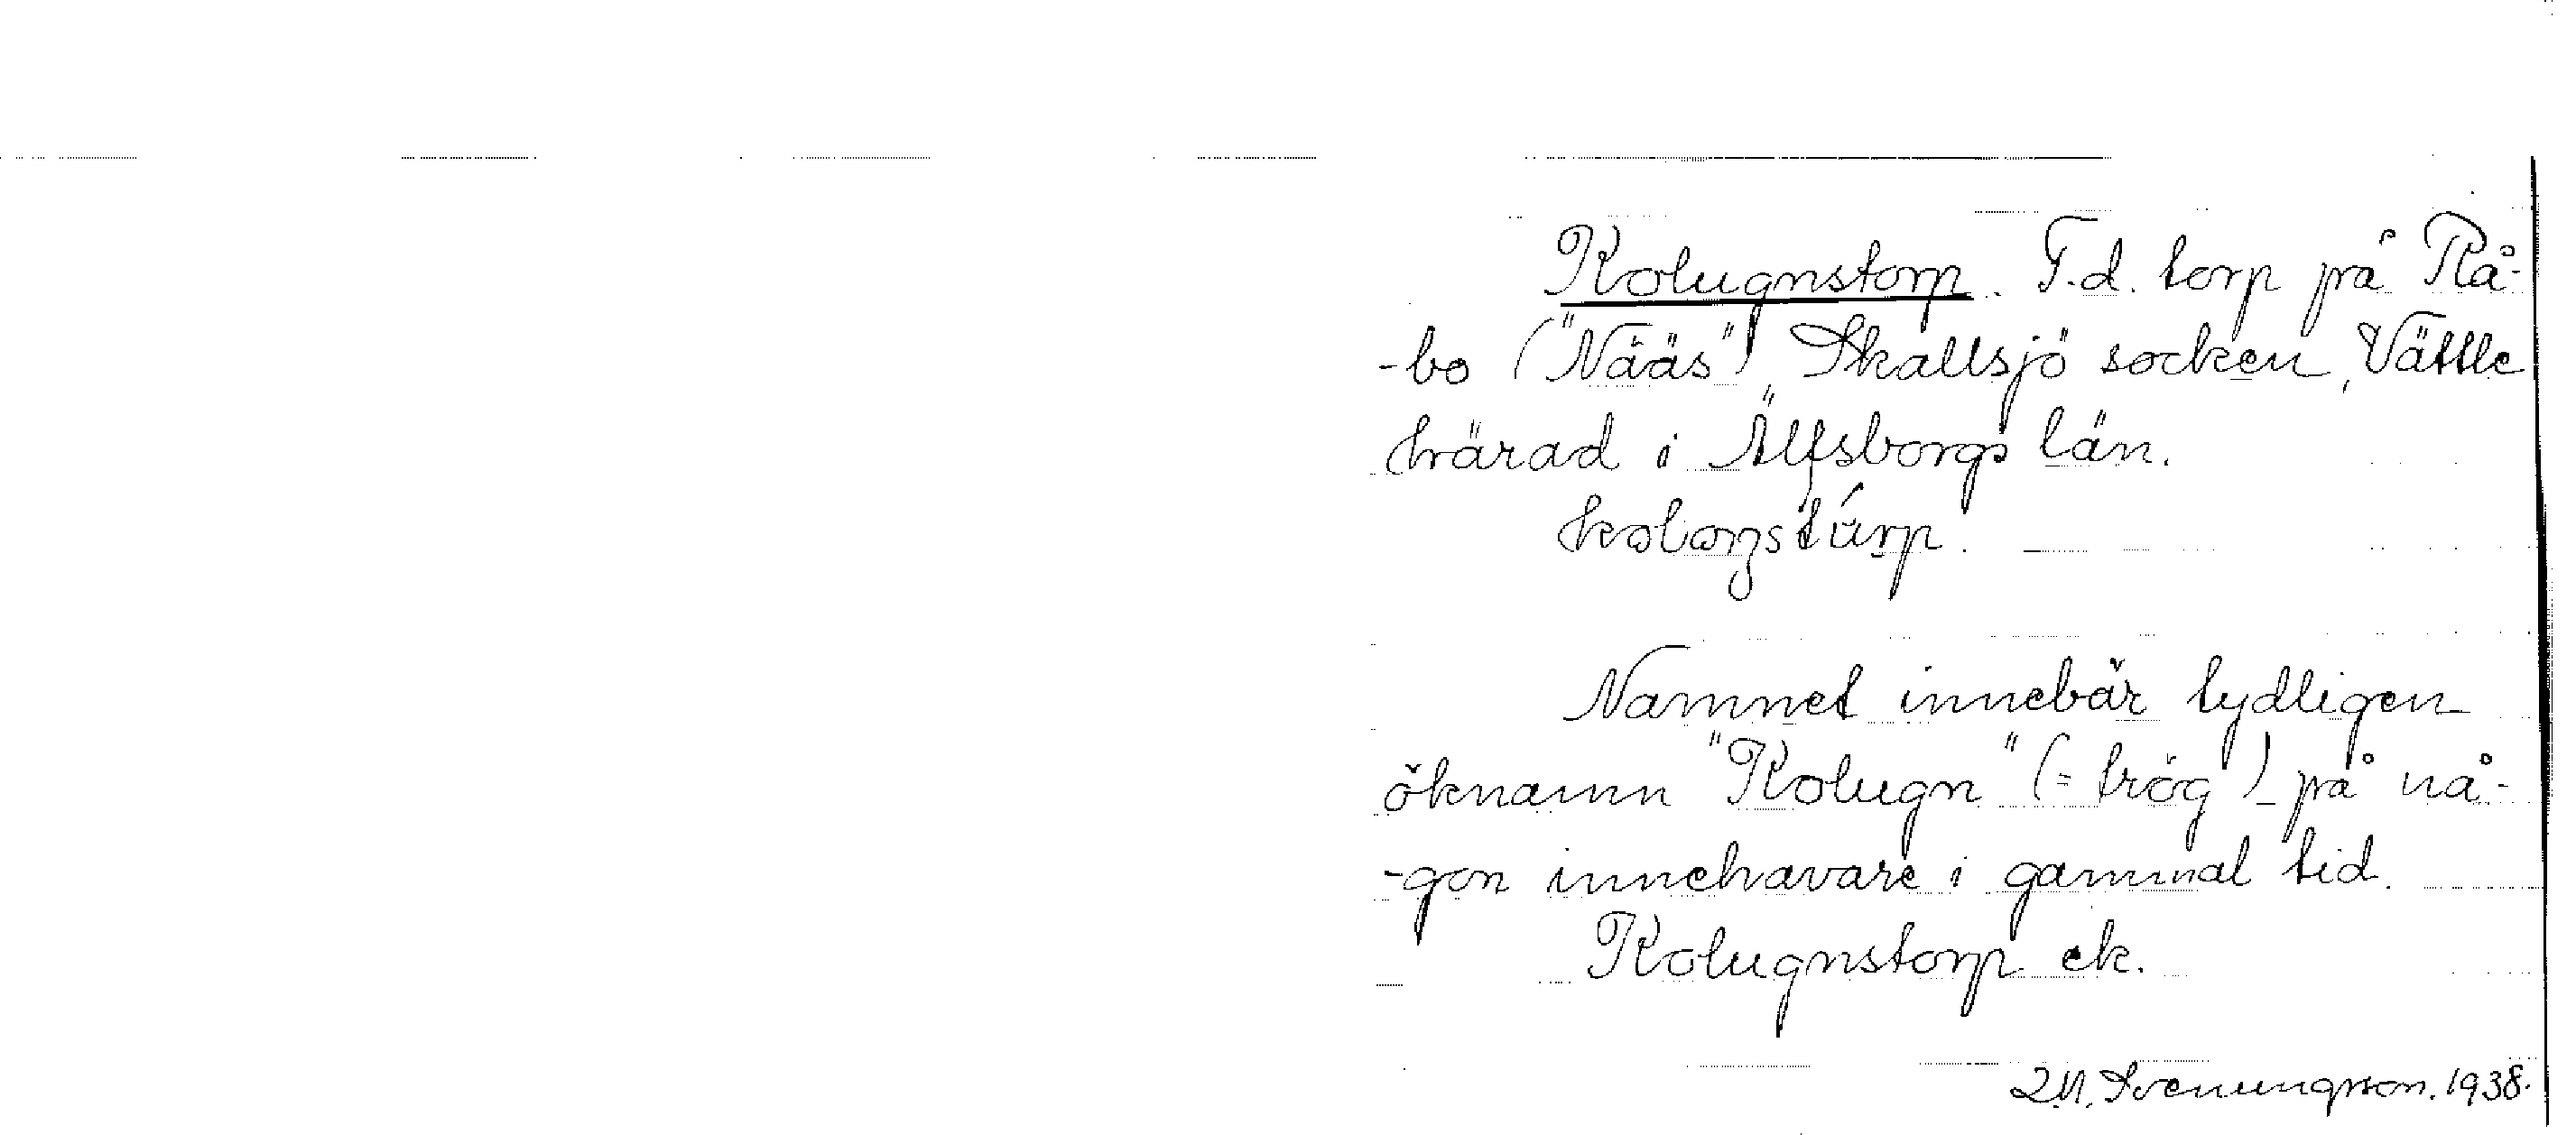 Kolugnstorp. F.d. torp på Rå-
-bo ("Nääs"), Skallsjö socken, Vättle
härad i Älfsborgs län.
Namnet innebär tydligen
öknamn "Kolugn" (= trög) på nå-
-gon innehavare i gammal tid.
Kolugnstorp ek.
Svenungsson. 1938.